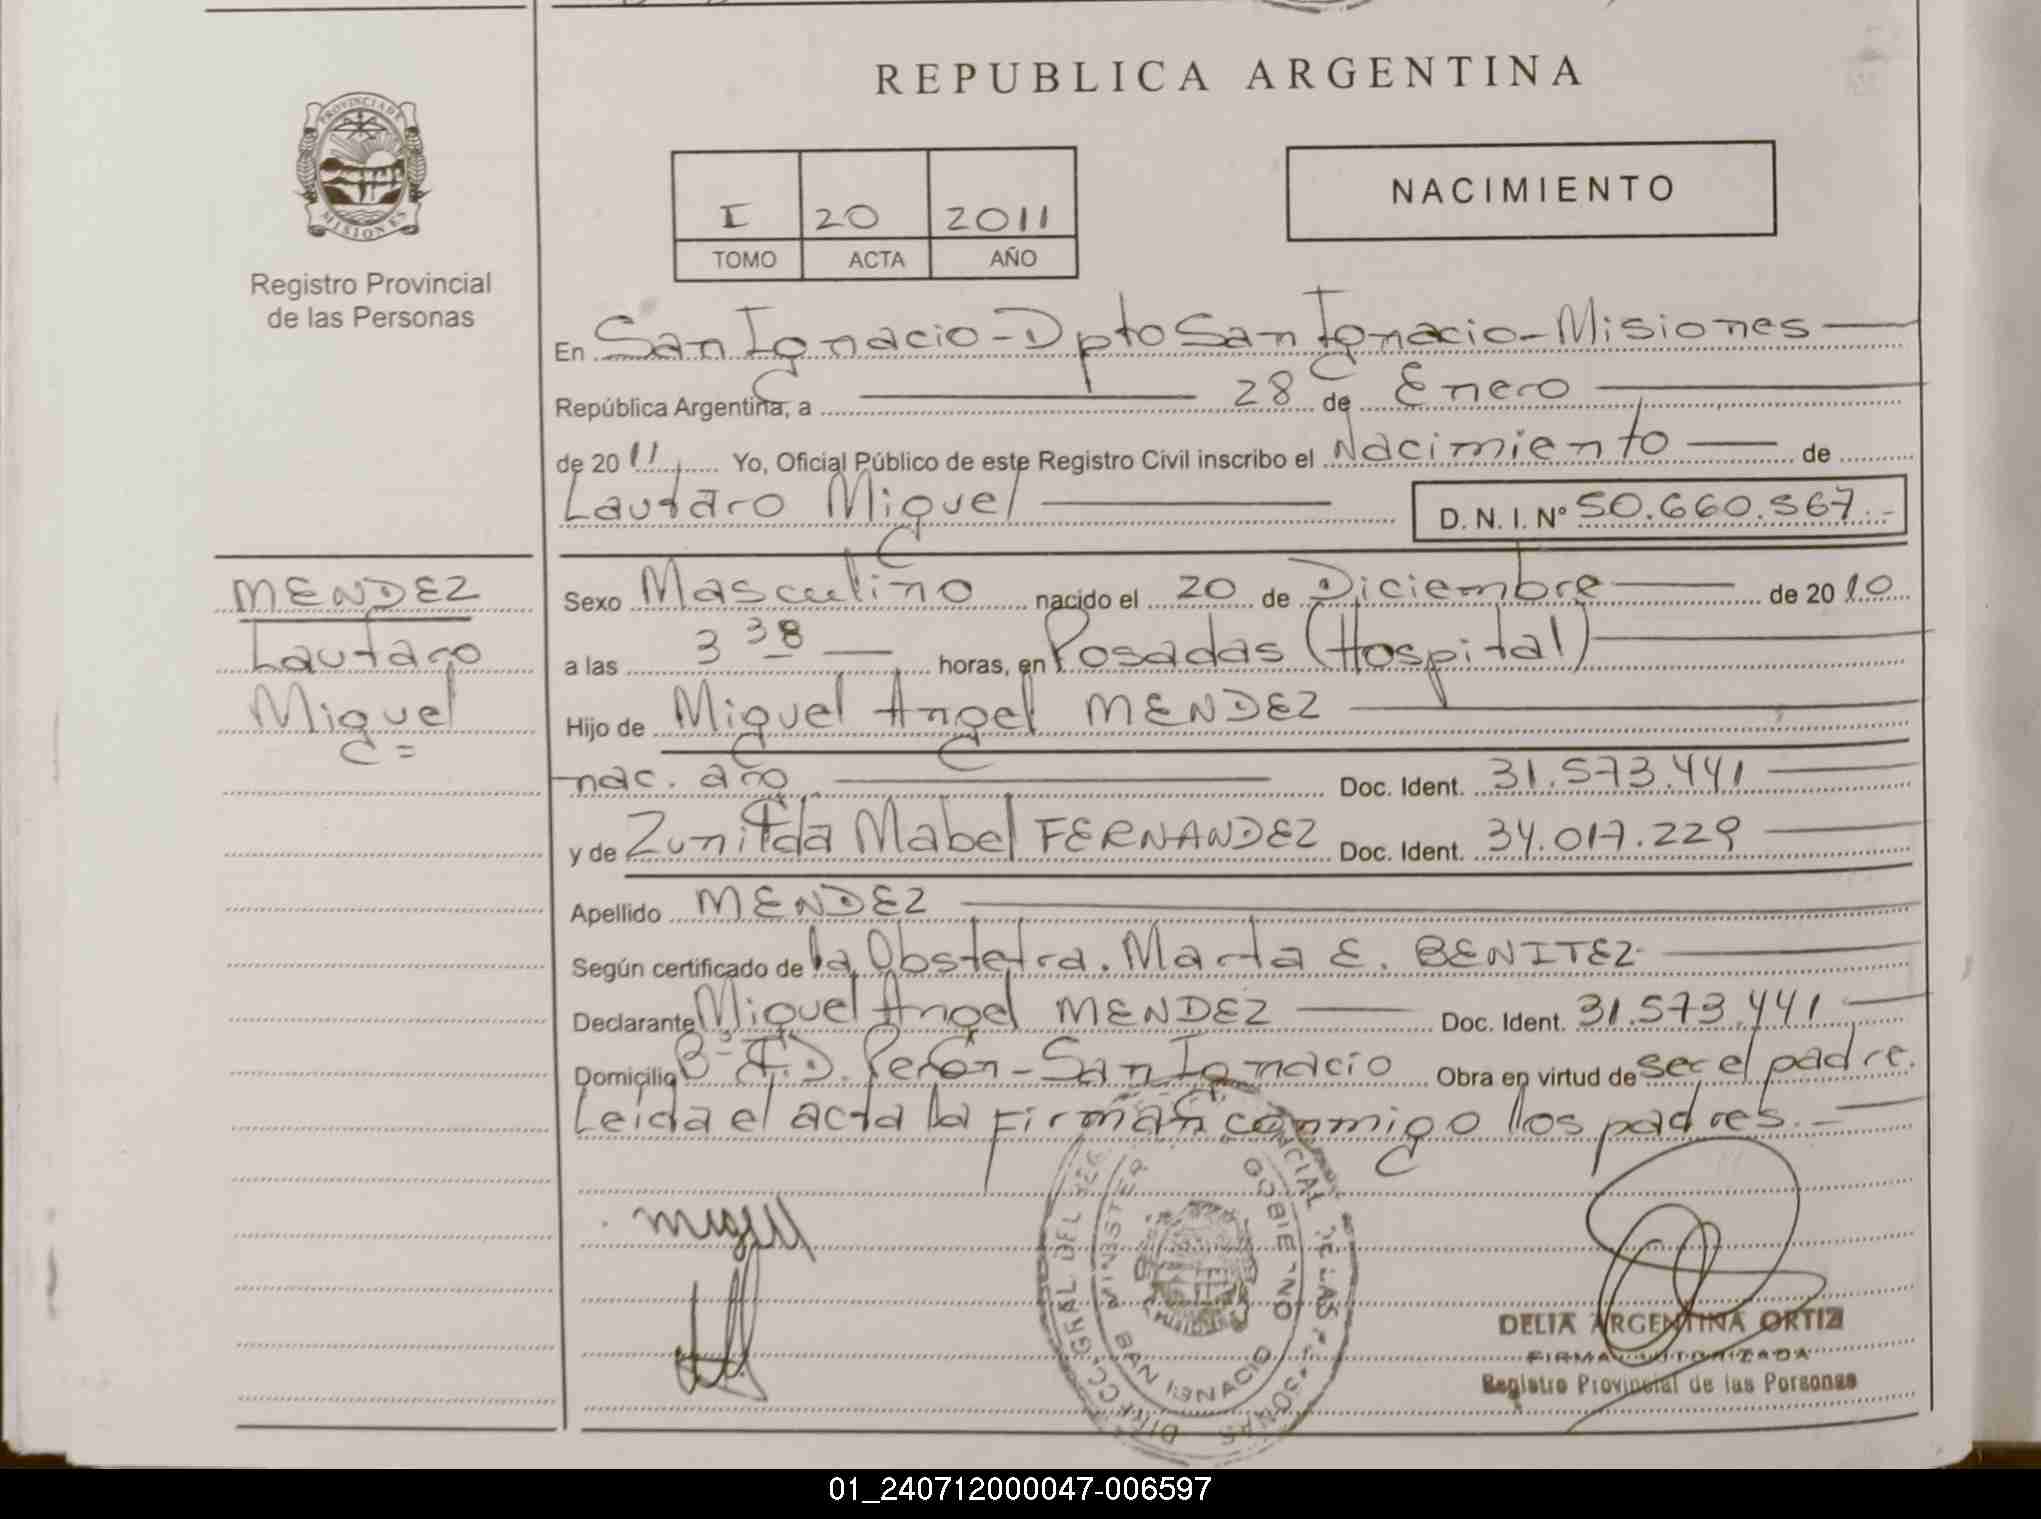 REPUBLICA ARGENTINA
PROVINCIA DE MISIONES
Registro Provincial
de las Personas
I 20 2011
TOMO ACTA AÑO
NACIMIENTO
En San Ignacio - Dpto San Ignacio - Misiones
República Argentina, a 28 de Enero
de 2011 Yo, Oficial Público de este Registro Civil inscribo el Nacimiento de
Lautaro Miguel D. N. I. N° 50.660.567.-
MENDEZ
Lautaro
Miguel =
Sexo Masculino nacido el 20 de Diciembre de 2010
a las 3 38 horas, en Posadas (Hospital)
Hijo de Miguel Angel MENDEZ
nac. arg Doc. Ident. 31.573.441
y de Zunilda Mabel FERNANDEZ Doc. Ident. 34.017.229
Apellido MENDEZ
Según certificado de la Obstetra. Marta E. BENITEZ
Declarante Miguel Angel MENDEZ Doc. Ident. 31.573.441
Domicilio B° Perón - San Ignacio Obra en virtud de ser el padre.
Leida el acta la firman conmigo los padres. -
DELIA ARGENTINA ORTIZ
FIRMA AUTORIZADA
Registro Provincial de las Personas
SAN IGNACIO
01_240712000047-006597